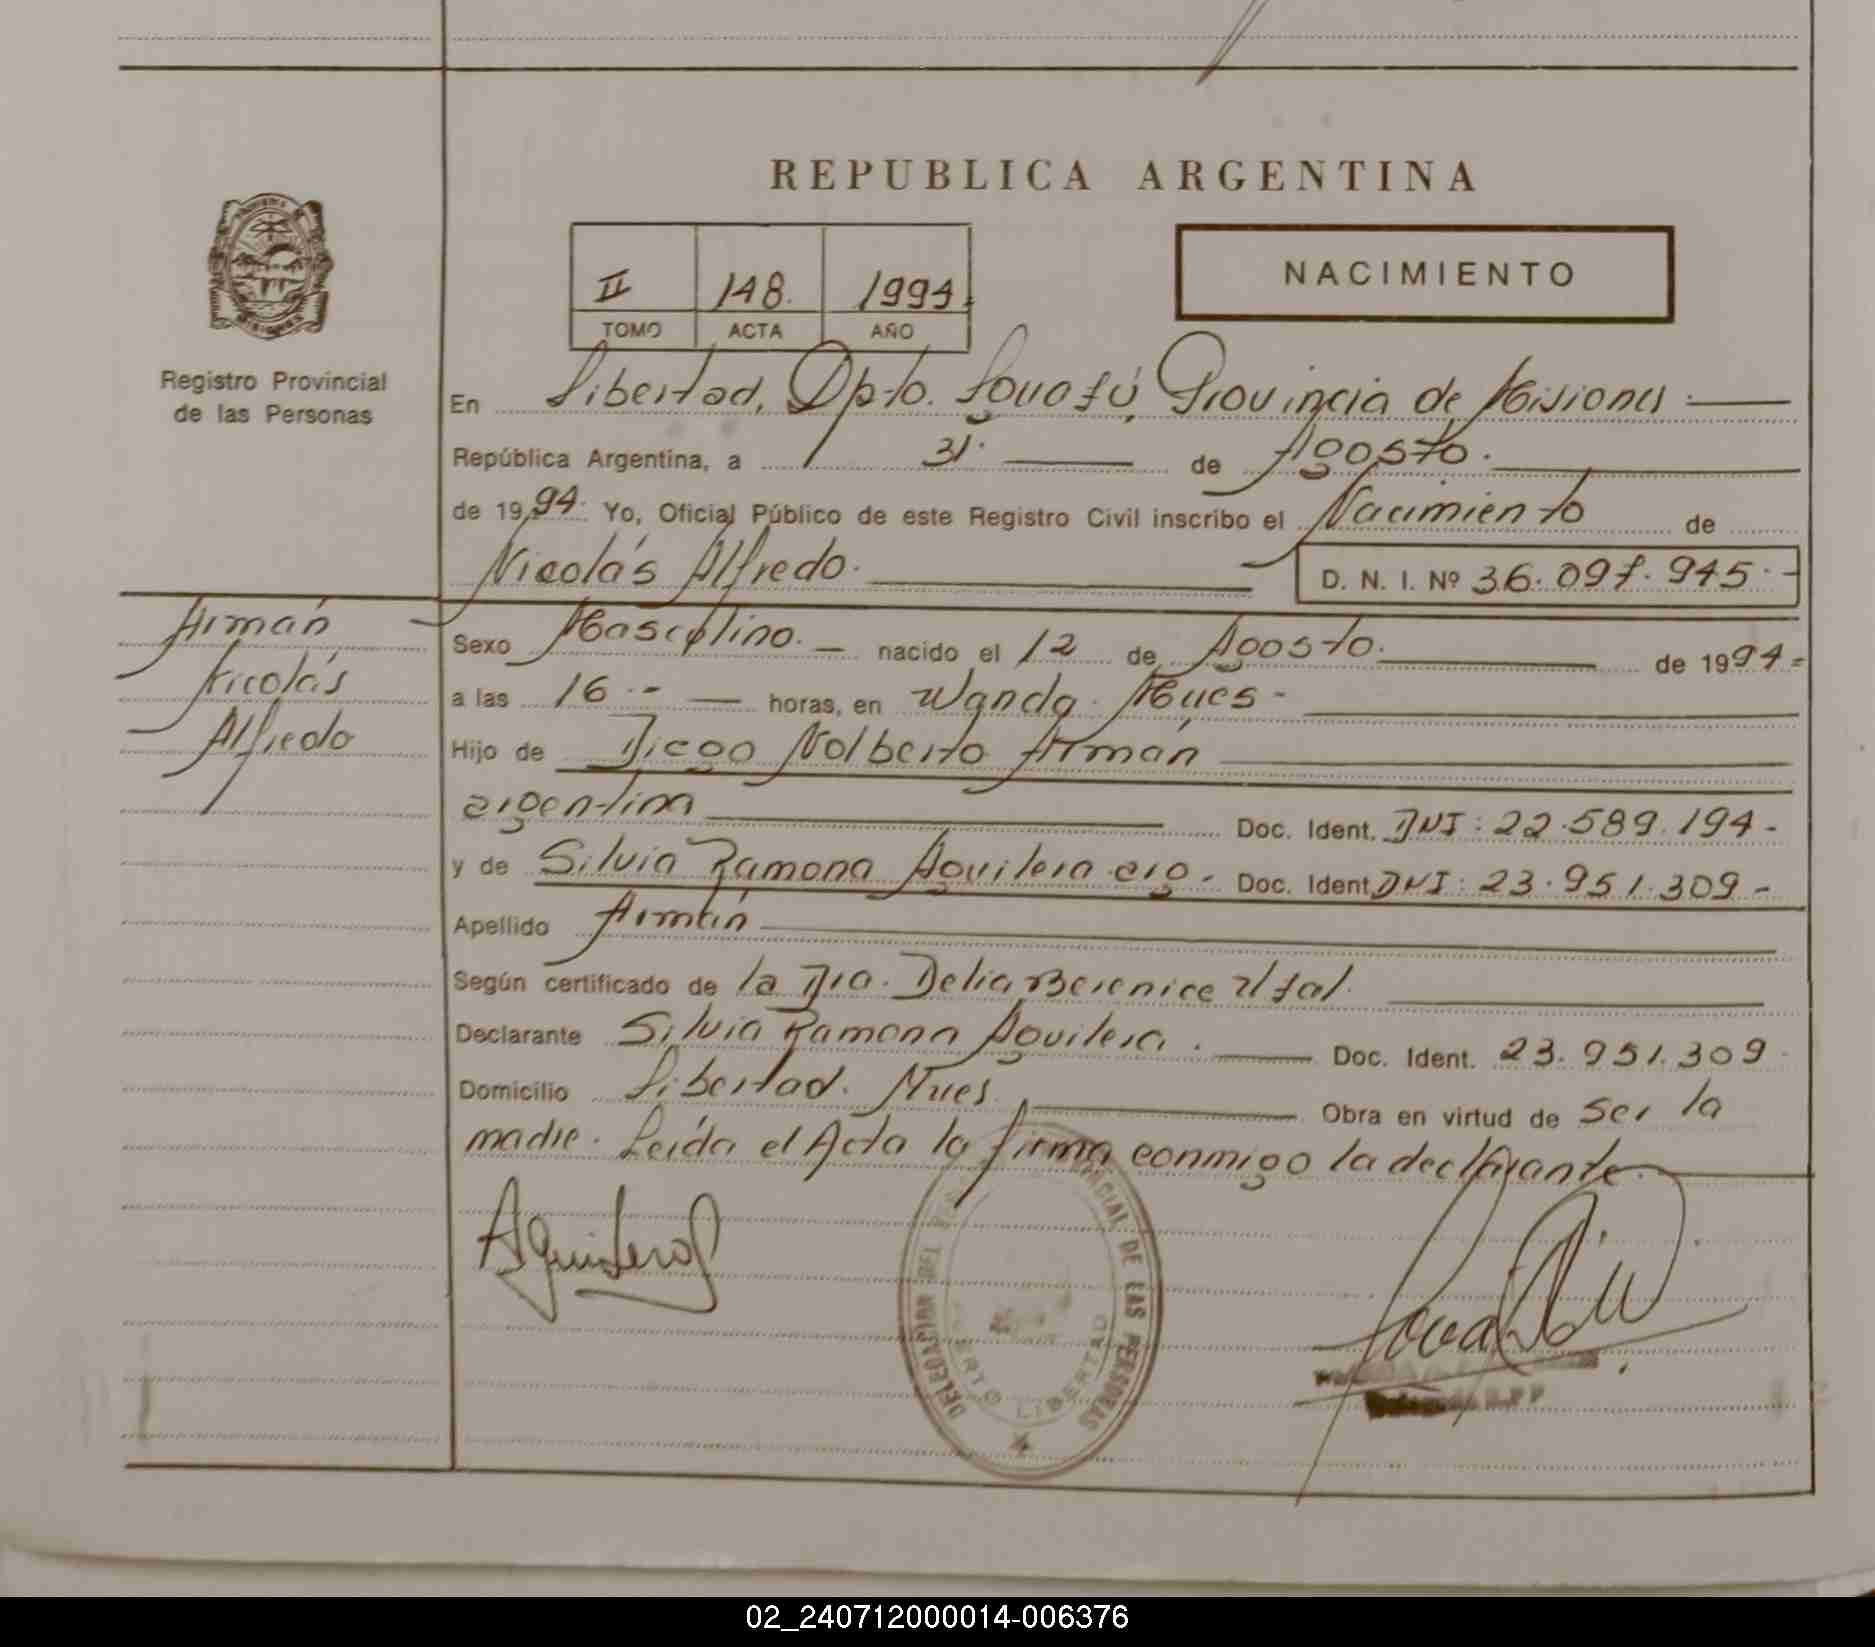 REPUBLICA ARGENTINA
II 148. 1994.
TOMO ACTA AÑO
NACIMIENTO
Registro Provincial
de las Personas
En Libertad, Dpto. Iguazú, Provincia de Misiones
República Argentina, a 31. de Agosto.
de 1994. Yo, Oficial Público de este Registro Civil inscribo el Nacimiento de
Nicolás Alfredo. D. N. I. Nº 36.097.945.-
Armán
Nicolás
Alfredo
Sexo Masculino.- nacido el 12 de Agosto. de 1994-
a las 16.- horas, en Wanda. Mnes-
Hijo de Diego Nolberto Armán
argentina Doc. Ident. DNI: 22.589.194-
y de Silvia Ramona Aguilera arg- Doc. Ident. DNI: 23.951.309-
Apellido Armán
Según certificado de la Dra. Delia Berenice
Declarante Silvia Ramona Aguilera. Doc. Ident. 23.951.309
Domicilio Libertad. Mnes Obra en virtud de ser la
madre. Leída el Acta la firma conmigo la declarante.
DELEGACION DEL DE LAS PERSONAS
PUERTO LIBERTAD
02_240712000014-006376